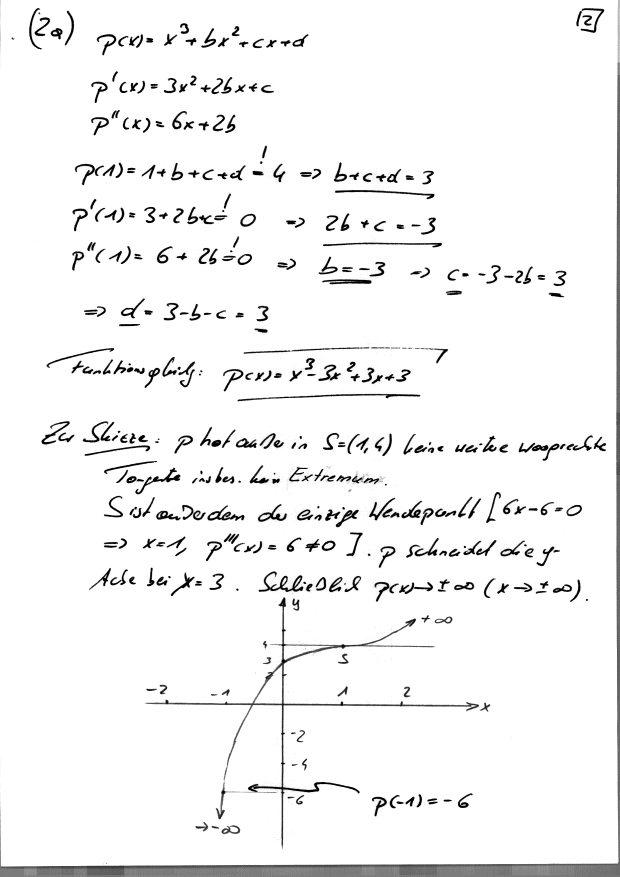 (2a) p(x) = x³+bx²+cx+d [2]
p'(x) = 3x²+2bx+c
p''(x) = 6x+2b
p(1) = 1+b+c+d =! 4 => b+c+d = 3
p'(1) = 3+2b+c =! 0 => 2b+c = -3
p''(1) = 6+2b =! 0 => b=-3 => c = -3-2b = 3
=> d = 3-b-c = 3
Funktionsgleichg: p(x) = x³-3x²+3x+3
Zur Skizze: p hat außer in S=(1,4) keine weitere waagrechte
Tangente insbes. kein Extremum.
S ist außerdem der einzige Wendepunkt [6x-6=0
=> x=1, p'''(x) = 6 ≠ 0]. p schneidet die y-
Achse bei y=3. Schließlich p(x)→±∞ (x→±∞).
y
+∞
4
S
3
2
-2 -1 1 2 x
-2
-4
-6 p(-1) = -6
→-∞